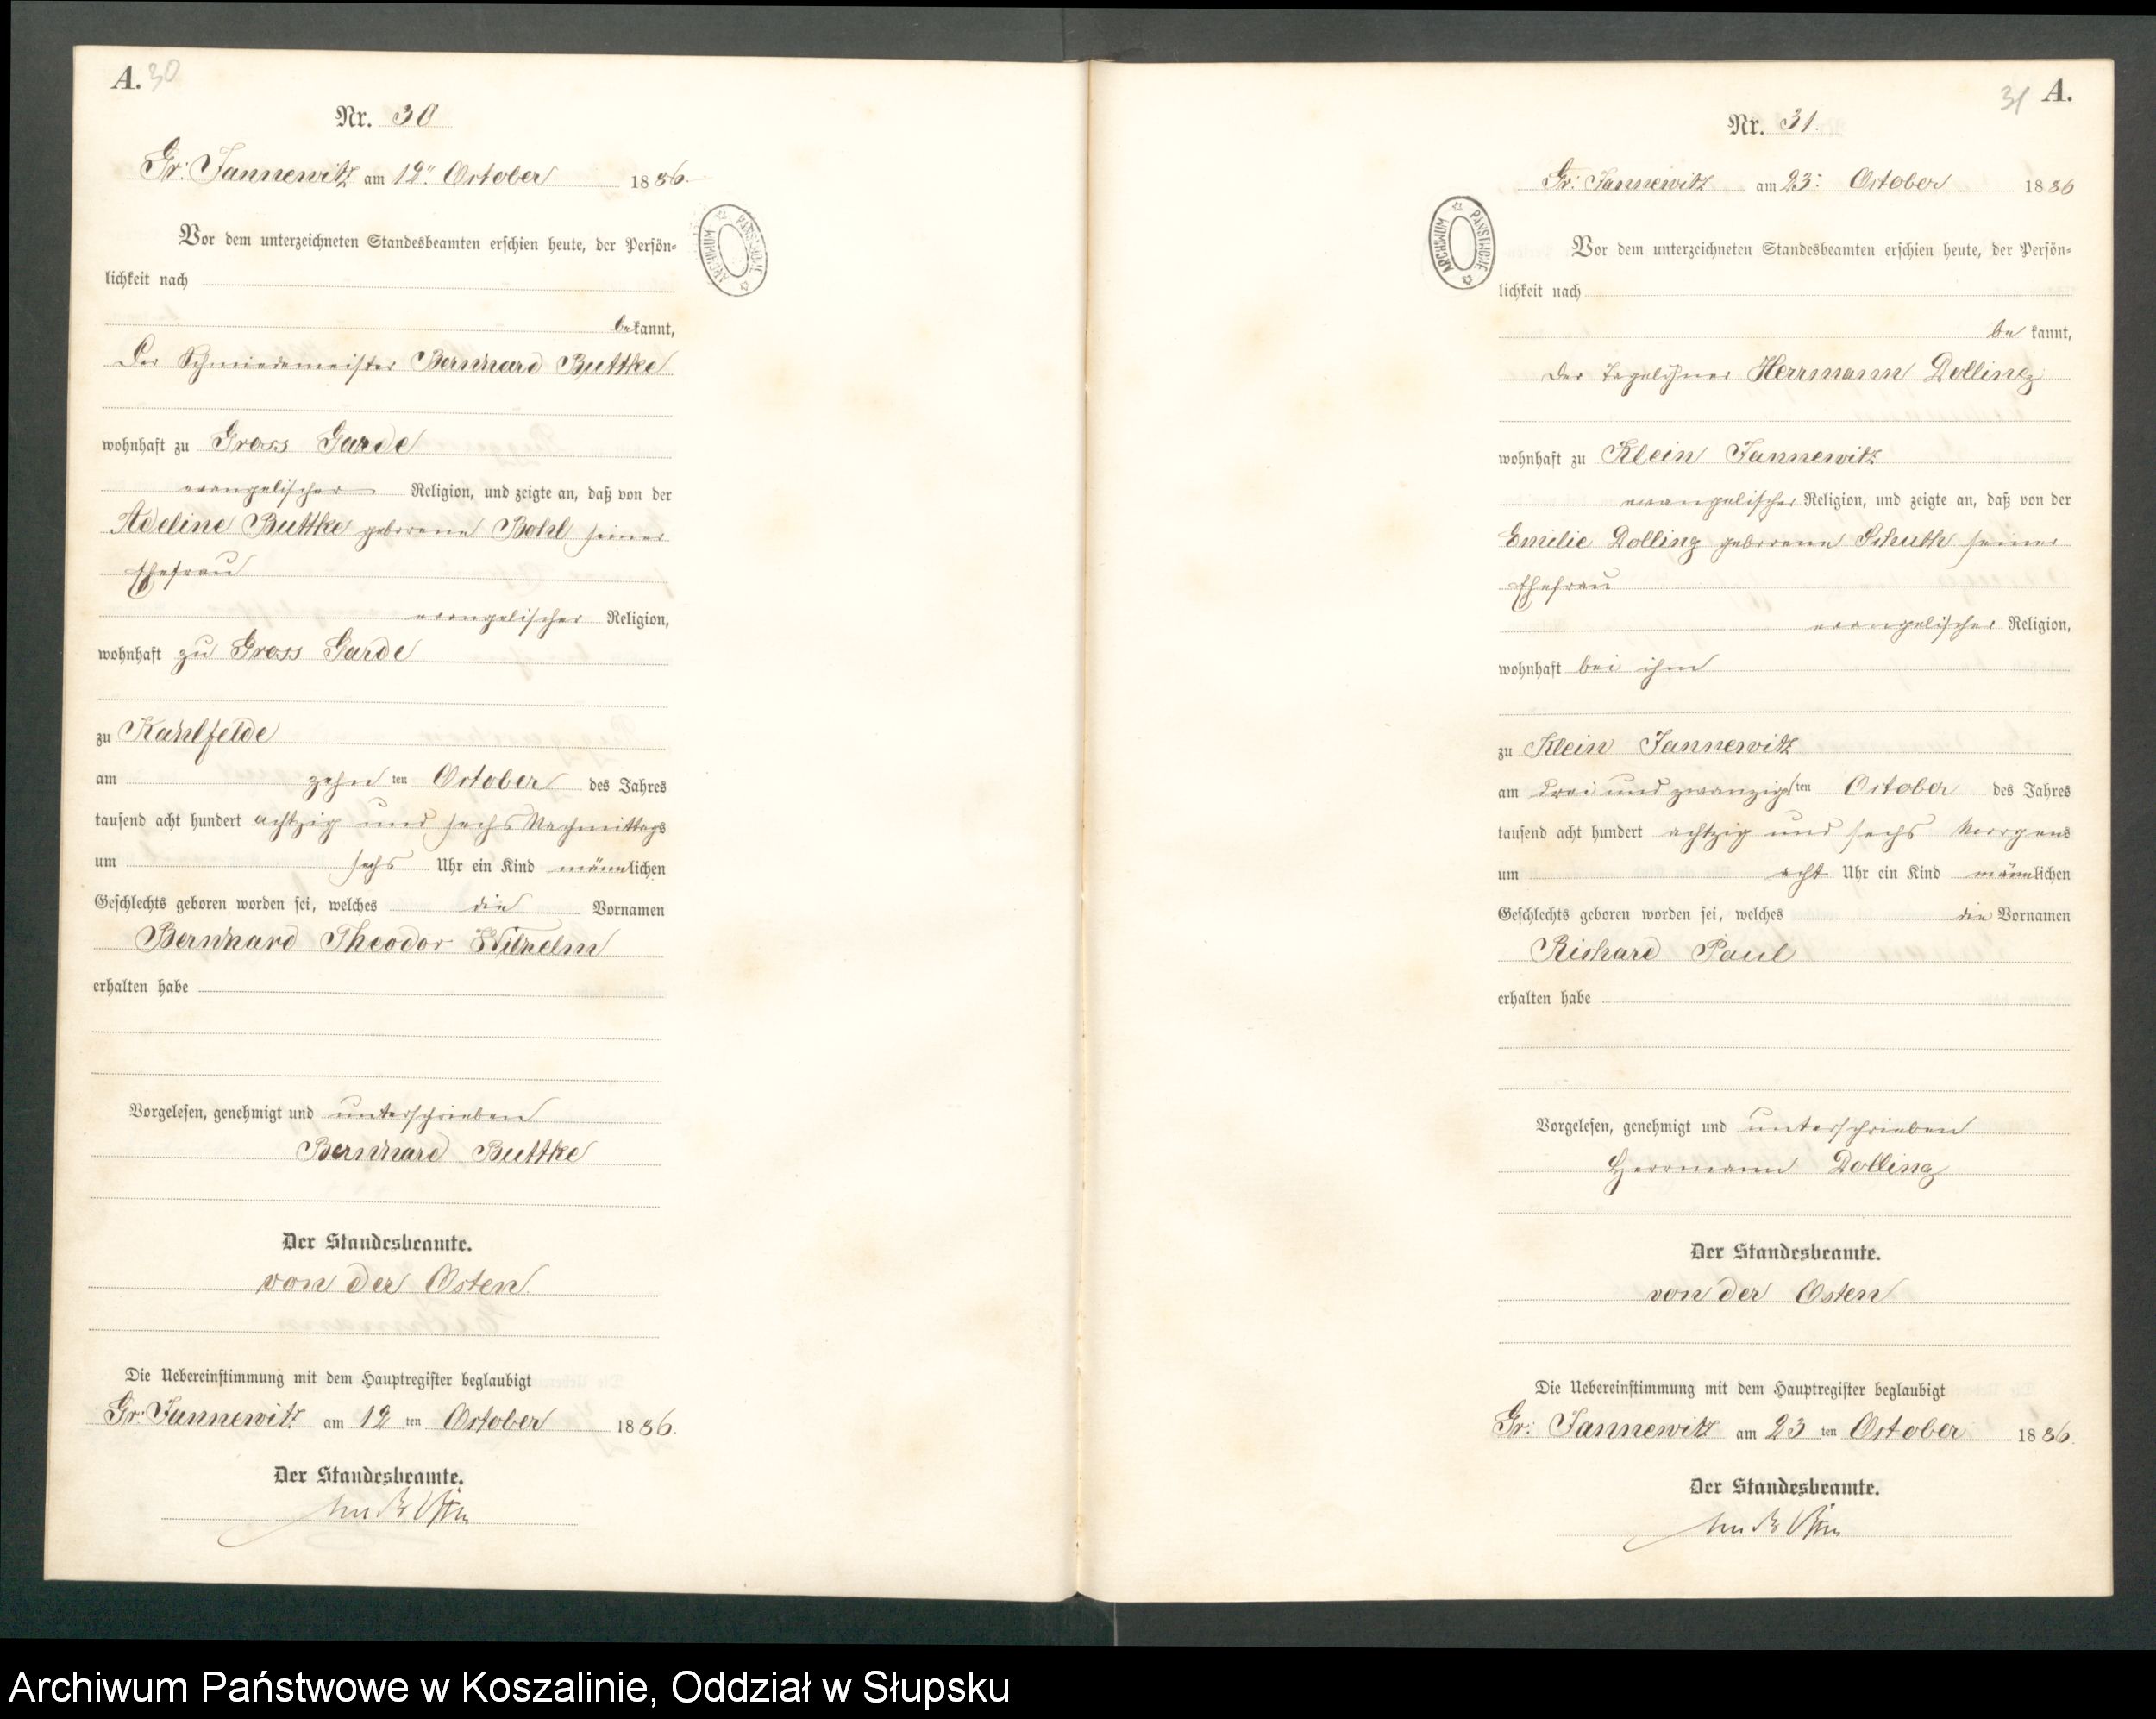 A. 30
Nr. 30
Gr. Jannewitz am 12ten October 1886.
ARCHIWUM PAŃSTWOWE
Vor dem unterzeichneten Standesbeamten erschien heute, der Persön-
lichkeit nach
bekannt,
Der Schmiedemeister Bernhard Buttke
wohnhaft zu Gross Garde
evangelischer Religion, und zeigte an, daß von der
Adeline Buttke geborene Bohl seiner
Ehefrau
evangelischer Religion,
wohnhaft zu Gross Garde
zu Kahlfelde
am zehn ten October des Jahres
tausend acht hundert achtzig und sechs Nachmittags
um sechs Uhr ein Kind männlichen
Geschlechts geboren worden sei, welches die Vornamen
Bernhard Theodor Wilhelm
erhalten habe
Vorgelesen, genehmigt und unterschrieben
Bernhard Buttke
Der Standesbeamte.
von der Osten
Die Uebereinstimmung mit dem Hauptregister beglaubigt
Gr. Jannewitz am 12 ten October 1886.
Der Standesbeamte.
von der Osten
31 A.
Nr. 31.
Gr. Jannewitz am 23. October 1886
ARCHIWUM PAŃSTWOWE
Vor dem unterzeichneten Standesbeamten erschien heute, der Persön-
lichkeit nach
be kannt,
der Tagelöhner Herrmann Dolling
wohnhaft zu Klein Jannewitz
evangelischer Religion, und zeigte an, daß von der
Emilie Dolling geborene Schuth seiner
Ehefrau
evangelischer Religion,
wohnhaft bei ihm
zu Klein Jannewitz
am drei und zwanzigs ten October des Jahres
tausend acht hundert achtzig und sechs Morgens
um acht Uhr ein Kind männlichen
Geschlechts geboren worden sei, welches die Vornamen
Richard Paul
erhalten habe
Vorgelesen, genehmigt und unterschrieben
Herrmann Dolling
Der Standesbeamte.
von der Osten
Die Uebereinstimmung mit dem Hauptregister beglaubigt
Gr. Jannewitz am 23 ten October 1886.
Der Standesbeamte.
von der Osten
Archiwum Państwowe w Koszalinie, Oddział w Słupsku